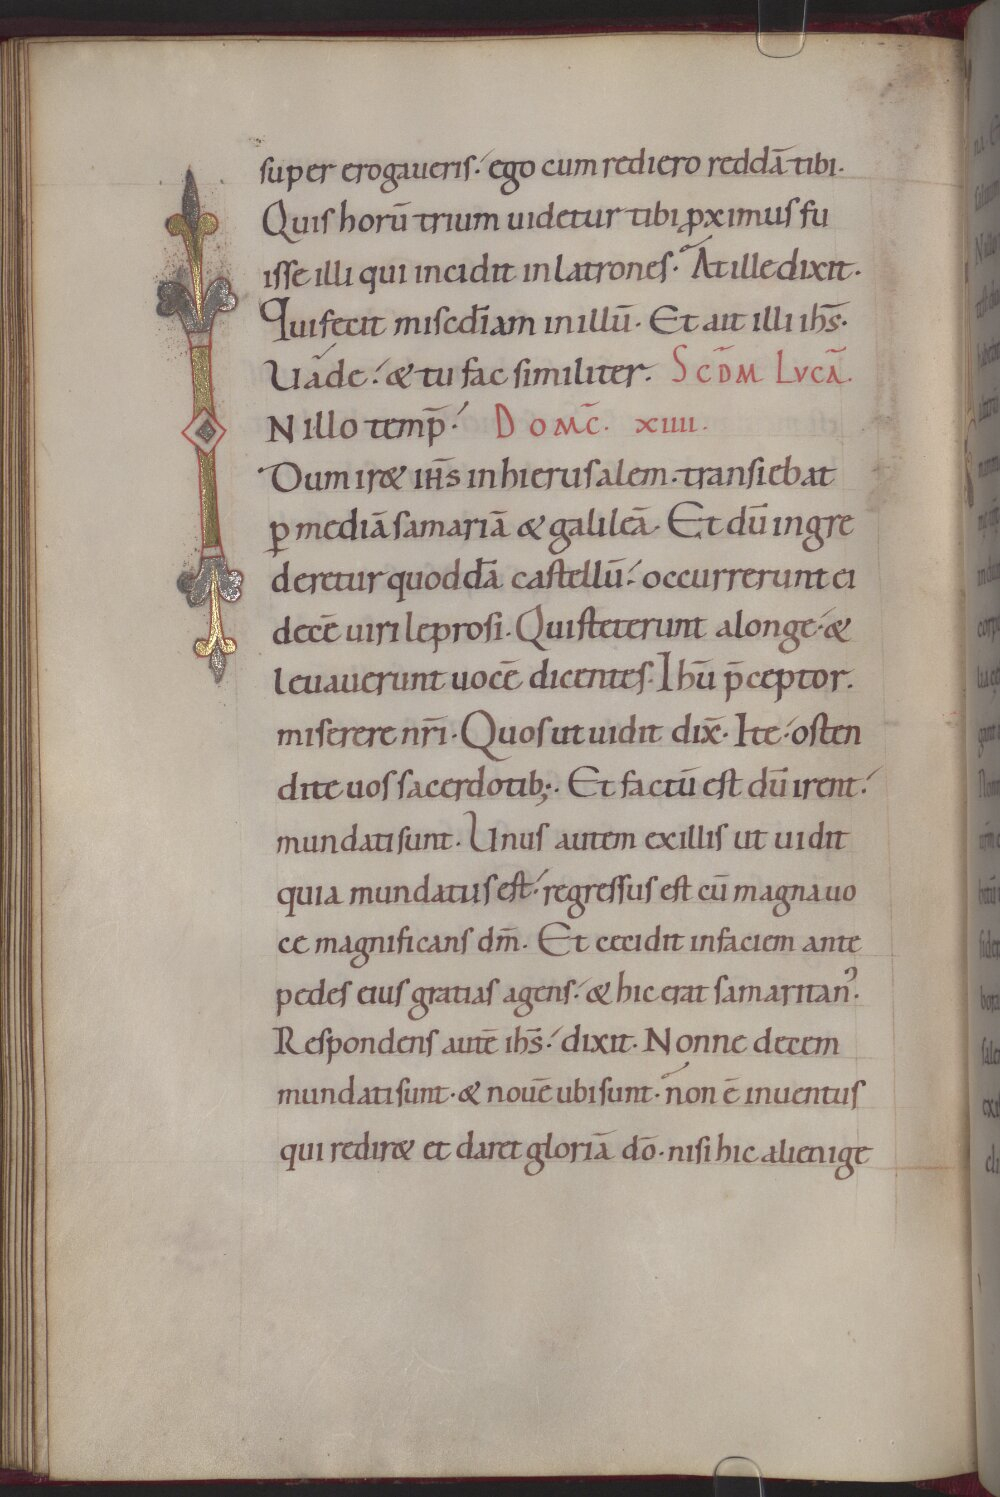 super erogaueris. ego cum rediero reddā tibi.
Quis horū trium uidetur tibi ꝓximus fu
isse illi qui incidit in latrones. At ille dixit.
Qui fecit miscd̄iam in illū. Et ait illi ihs̄.
Uade. & tu fac similiter. Scd̄m Lucā.
IN illo temp̄. Domc̄. xiiii.
Dum ir& iHs̄ in hierusalem. transiebat
ꝑ mediā samariā & galileā. Et dū ingre
deretur quoddā castellū. occurrerunt ei
decē uiri leprosi. Qui steterunt a longe. &
leuauerunt uocē dicentes. Ihū p̄ceptor.
miserere nr̄i. Quos ut uidit dix̄. Ite. osten
dite uos sacerdotib;. Et factū est dū irent.
mundati sunt. Unus autem ex illis ut uidit
quia mundatus est. regressus est cū magna uo
ce magnificans dm̄. Et cecidit in faciem ante
pedes eius gratias agens. & hic erat samaritanꝰ.
Respondens autē ihs̄. dixit. Nonne decem
mundati sunt. & nouē ubi sunt. non ē inuentus
qui redir& et daret gloriā dō. nisi hic alienige